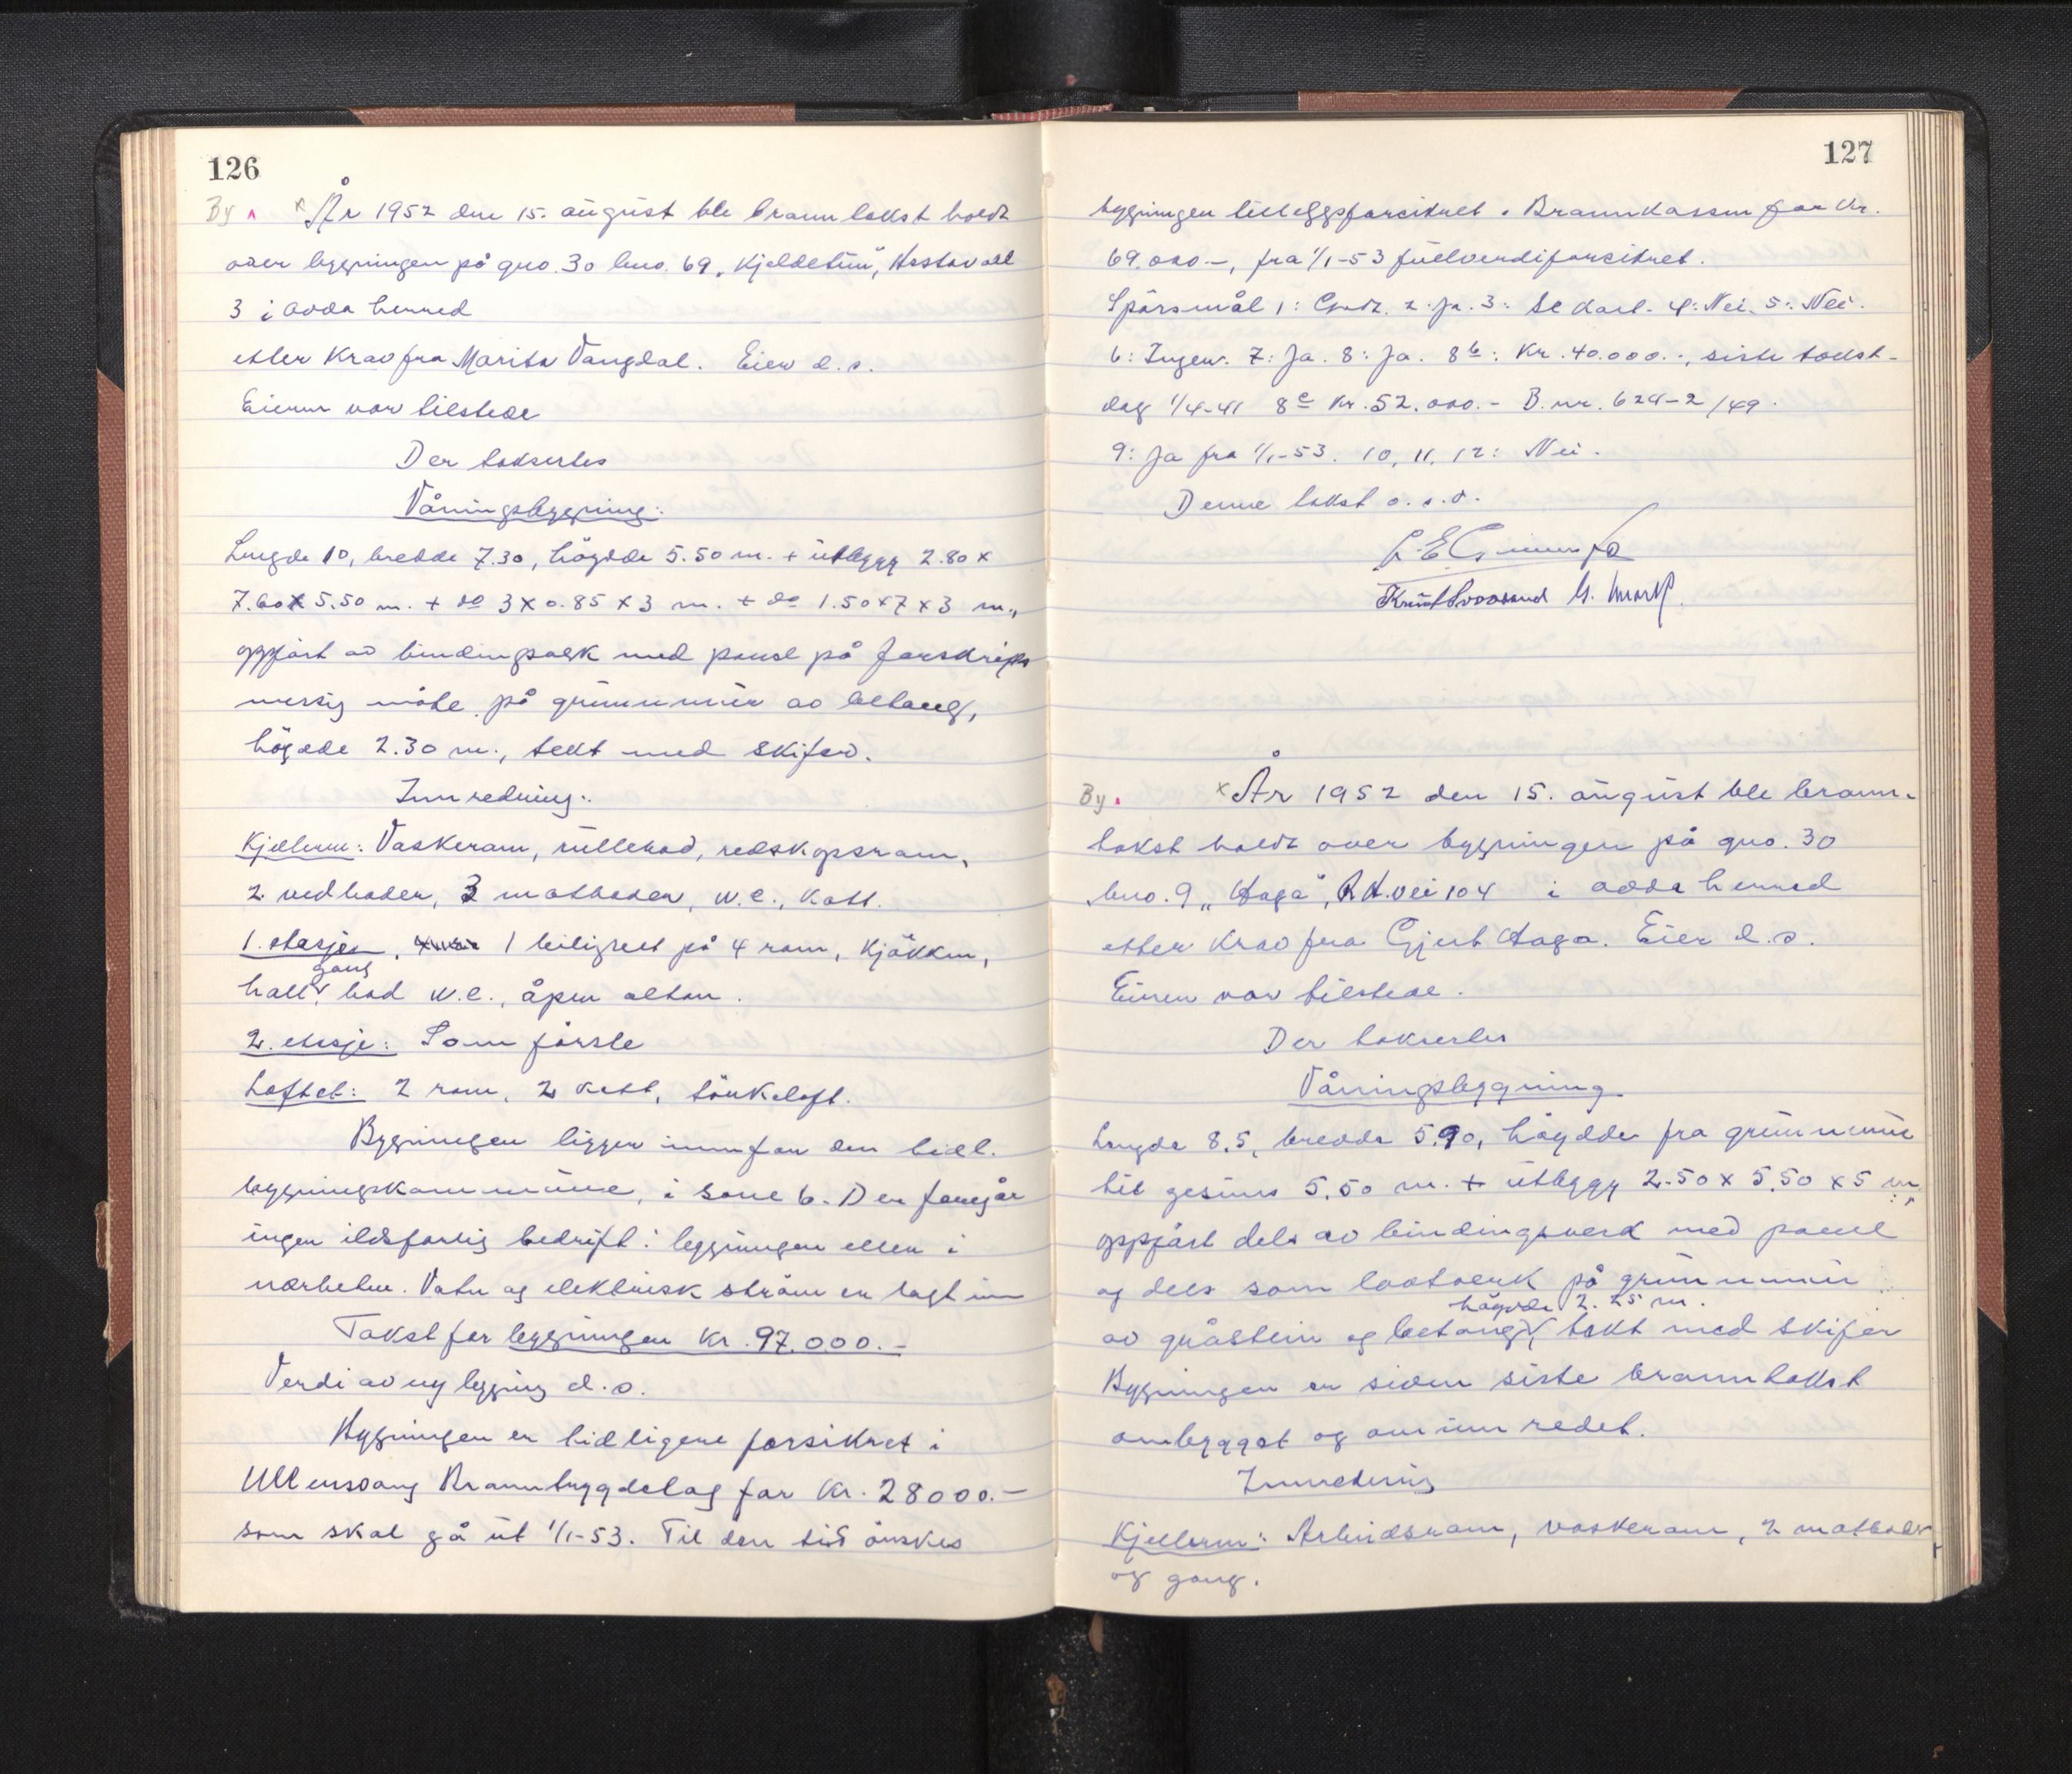 126
By. × År 1952 den 15. august ble branntakst holdt
over bygningen på gno. 30 bno. 69 „Kjeldetun",
3 i Odda herred
etter krav fra Marita Vangdal. Eier d.s.
Eieren var tilstede
Der taksertes
Våningsbygning:
Lengde 10, bredde 7.30, høgde 5.50 m. + utbygg 2.80 x
7.60 x 5.50 m. + do 3 x 0.85 x 3 m. + do 1.50 x 7 x 3 m.,
oppført av bindingsverk med panel på forskrifts
messig måte på grunnmur av betong,
høgde 2.30 m., tekt med skifer.
Innredning:
Kjelleren: Vaskerom, rullebod, redskapsrom,
2 vedboder, 3 matboder, w.c., kott.
1. etasje, 1 leilighet på 4 rom, kjøkken,
gang
hall, bad w.c., åpen altan.
2. etasje: Som første
Loftet: 2 rom, 2 kott, tørkeloft.
Bygningen ligger innafor den tidl.
bygningskommune, i sone 6. Der foregår
ingen ildsfarlig bedrift i bygningen eller i
nærheten. Vatn og elektrisk strøm er lagt inn
Takst for bygningen kr. 97.000.-
Verdi av ny bygning d.s.
Bygningen er tidligere forsikret i
Ullensvang Brannbygdelag for kr. 28000.-
som skal gå ut 1/1-53. Til den tid ønskes
127
bygningen tilleggsforsikret i Brannkassen for kr.
69.000.-, fra 1/1-53 fullverdiforsikret.
Spørsmål 1: Godt. 2: Ja. 3: Se kart. 4: Nei. 5: Nei.
6: Ingen. 7: Ja. 8: Ja. 8b: Kr. 40.000.-, siste takst-
dag 1/4-41 8c Kr. 52.000.- B.nr. 624-2/49.
9: Ja fra 1/1-53. 10, 11, 12: Nei.
Denne takst o.s.v.
By. × År 1952 den 15. august ble brann-
takst holdt over bygningen på gno. 30
bno. 9 „Haga", R.H.vei 104 i Odda herred
etter krav fra Gjert Haga. Eier d.s.
Eieren var tilstede.
Der taksertes
Våningsbygning
Lengde 8.5, bredde 5.90, høgde fra grunnmur
til gesims 5.50 m. + utbygg 2.50 x 5.50 x 5 m.
oppført dels av bindingsverk med panel
og dels som laftverk på grunnmur
høgde 2.25 m.
av gråstein og betong, tekt med skifer
Bygningen er siden siste branntakst
ombygget og ominnredet.
Innredning
Kjelleren: Arbeidsrom, vaskerom, 2 matboder
og gang.